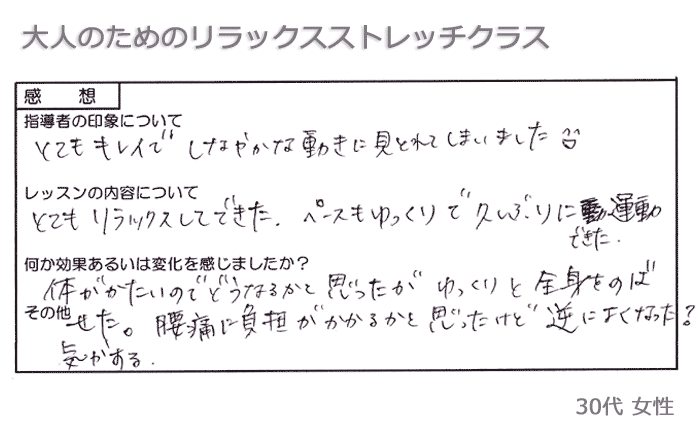 大人のためのリラックスストレッチクラス
感 想
指導者の印象について
とてもキレイで しなやかな動きに見とれてしまいました
レッスンの内容について
とてもリラックスしてできた. ペースもゆっくりで久しぶりに運動
できた.
何か効果あるいは変化を感じましたか？
体がかたいのでどうなるかと思ったが ゆっくりと全身をのば
その他
せた。腰痛に負担がかかるかと思ったけど逆によくなった？
気がする.
30代 女性